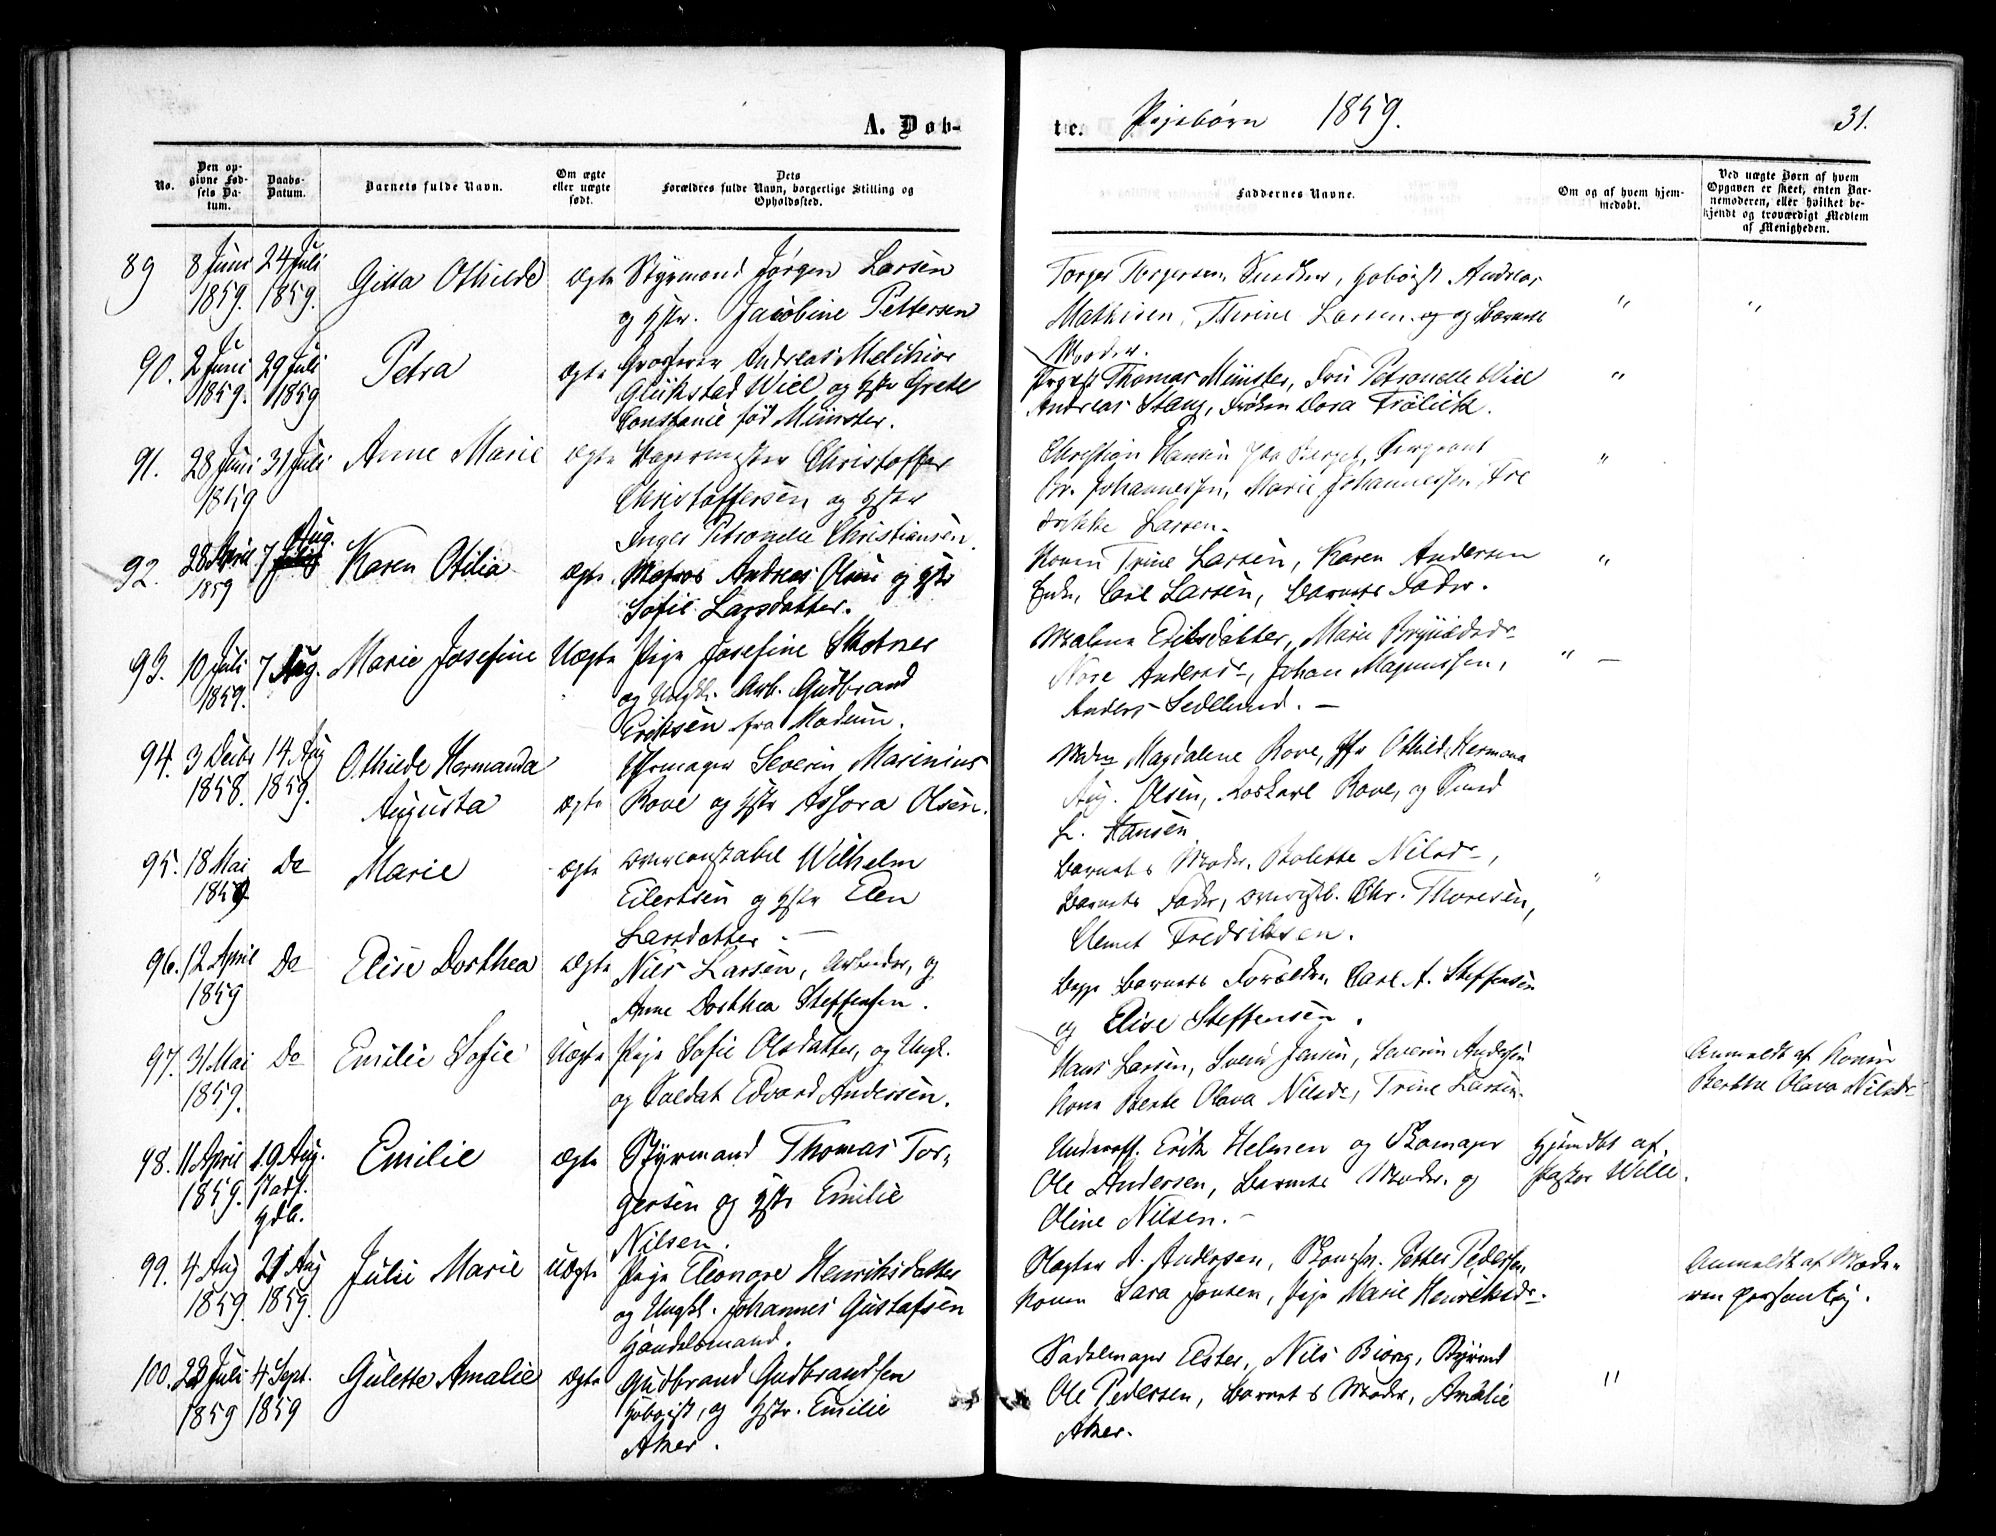 A. Døb-
No.
Den op-
givne Fød-
sels Da-
tum.
Daabs-
Datum.
Barnets fulde Navn.
Om ægte
eller uægte
født.
Dets
Forældres fulde Navn, borgerlige Stilling og
Opholdssted.
89 8 Juni 24 Juli Gitta Othilde ægte Styrmand Jørgen Larsen
1859. 1859. og Hstr. Jacobine Pettersen
90. 2 Juni 29 Juli Petra ægte Grosserer Andreas Melchior
1859. 1859 Glükstad Wiel og Hstr Grete
Constance fød Münster.
91. 28 Juni 31 Juli Anne Marie ægte Christoffer
1859 Christoffersen og Hstr
Inger Petronelle Christiansen.
92. 28 April 7 Aug. Karen Otilia ægte. Matros Andreas Olsen og Hstr
1859 Sofie Larsdatter.
93. 10 Juli 7 Aug. Marie Josefine Uægte Pige Josefine Skotner
1859. og Ungk. Arb. Gudbrand
Eriksen fra Modum.
94. 3 Decbr 14 Aug Othilde Hermanda Uhrmager Severin Marinius
1858. 1859. Augusta ægte Rove og Hstr Assora Olsen.
95. 18 Mai Do Marie ægte Overconstabel Wilhelm
1859 Eilertsen og Hstr Elen
Larsdatter. —
96. 12 April Do Elise Dorthea ægte Nils Larsen, Arbeider, og
1859 Anne Dorthea Steffensen.
97. 31 Mai Do Emilie Sofie Uægte Pige Sofie Olsdatter, og Ungk.
1859. og Soldat Edvard Andersen.
98. 11 April 19 Aug. Emilie ægte Styrmand Thomas Tor-
1859. stadf. gersen og Hstr Emilie
Hdb. Nilsen.
99. 4 Aug 21 Aug Julie Marie uægte Pige Eleonore Henriksdatter
1859. 1859. og Ungk. Johannes Gustafsen
Handelsmand.
100. 22 Juli 4 Sept. Gulette Amalie ægte Gudbrand Gudbrandsen
1859 1859 Hoboist, og Hstr. Emilie
Aker.
te. Pigebørn 1859. 31.
Faddernes Navne.
Om og af hvem hjem-
medøbt.
Ved uægte Børn af hvem
Opgaven er skeet, enten Bar-
nemoderen, eller hvilket be-
kjendt og troværdigt Medlem
af Menigheden.
Torger Torgersen, Snedker, Hoboist Andreas
Mathisen, Thrine Larsen og Barnets " "
Moder.
Thomas Münster, Fru Petronelle Wiel "
Andreas Stang, Frøken Dora Frölich.
Christian Hansen Sergeant "
Johannessen, Marie Johannessen, Fre
drikke Larsen.
Konen Trine Larsen, Karen Andersen "
Enke, Carl Larsen, Barnets Fader.
Malene Eriksdatter, Marie " —
Andersdr, Johan Magnussen,
Anders Sedelund. —
Magdalene Rove, Othilde Hermana
Aug. Olsen, Rove, og
L. Hansen
Barnets Moder, Bolette Nilsdr, "
Barnets Fader, Chr. Thoresen,
Clemet Fredriksen.
Begge Barnets Forældre, Carl A. Steffensen
og Elise Steffensen.
Hans Larsen, Svend Jansen, Severin Andersen Anmeldt af Konen
Kone Berte Olava Nilsdr, Trine Larsen. Berthe Olava Nilsdr
Underoff. Erik Helmen og Skomager Hjemdbt af
Ole Andersen, Barnets Moder og Pastor Wille.
Oline Nilsen. —
Slagter A. Andersen, Petter Pedersen Anmeldt af Mode-
Konen Sara Jonsen, Pige Marie Henriksdr. ren personlig.
Sadelmager Elster, Nils Biørg, "
Ole Pedersen, Barnets Moder, Amalie
Aker.